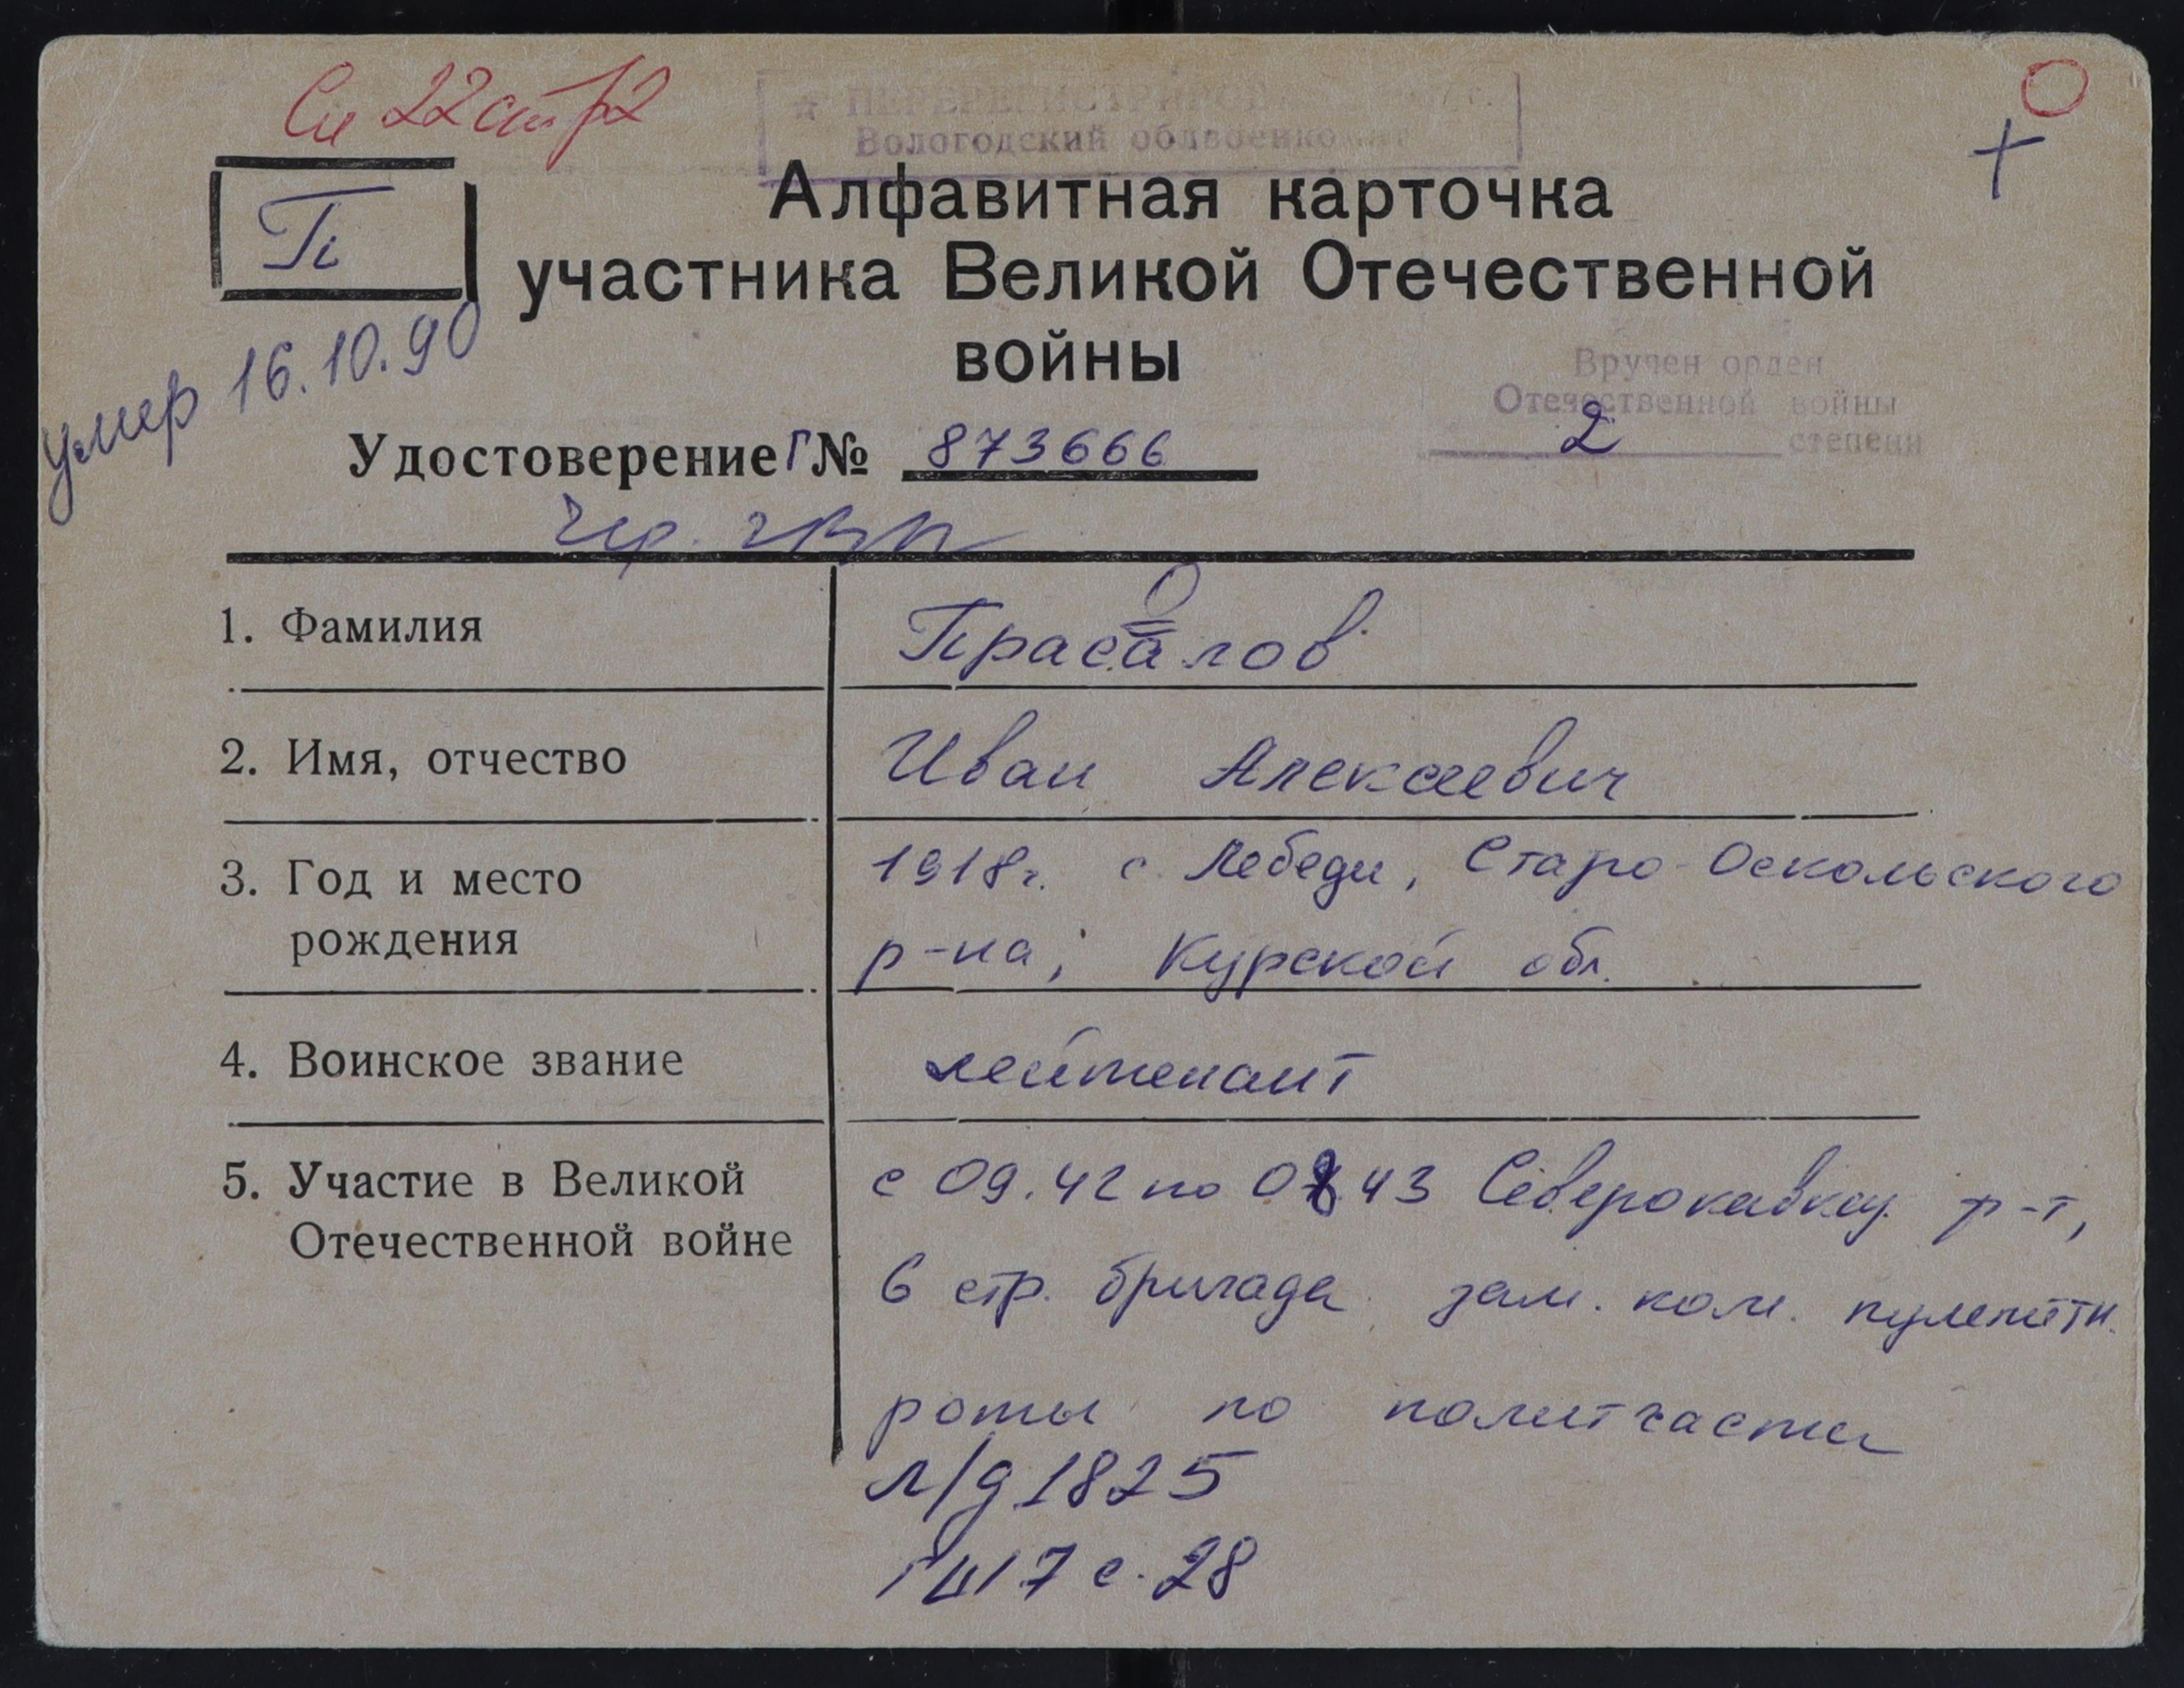 Сп 22 стр 2
☆ ПЕРЕРЕГИСТРИРОВАН
Вологодский облвоенкомат
П
Алфавитная карточка
участника Великой Отечественной
войны
умер 16.10.90
Вручен орден
Отечественной войны
2 степени
Удостоверение Г № 873666
1. Фамилия Прасалов
о
2. Имя, отчество Иван Алексеевич
3. Год и место 1918г. с. Лебеди, Старо-Оскольского
рождения р-на, Курской обл.
4. Воинское звание лейтенант
5. Участие в Великой с 09.42 по 08.43 Северокавказ. ф-т,
Отечественной войне 6 стр. бригада зам. ком. пулеметн.
роты по политчасти
л/д 1825
с. 28